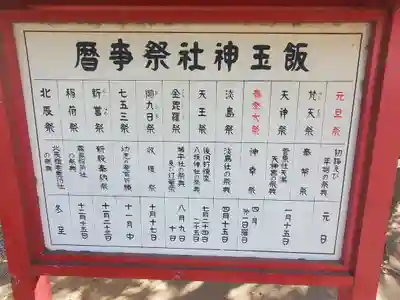 飯玉神社祭事暦
元旦祭
初詣及び年始の祭典
元日
梵天祭
奉幣祭
天神祭
菅原社天満天神宮の祭典
一月十五日
春季大祭
神幸祭
四月
第一日曜日
淡島祭
淡島社の祭典
四月十五日
天王祭
八坂神社の祭典
七月二十四
二十五日
金毘羅祭
琴平社の祭典及び灯篭祭
八月九日
十日
御九日祭
収穫祭
十月十七日
七五三祭
十一月中
新嘗祭
新穀奉納祭
十一月二十三日
稲荷祭
十二月十五日
北辰祭
の祭典
冬至